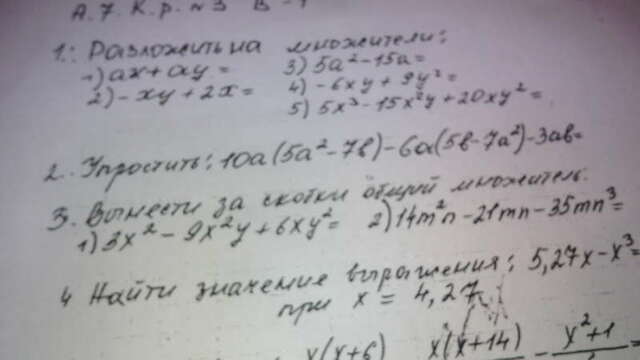 А. 7. К. р. №3 В - 1
1. Разложить на множители:
1) ax + ay = 3) 5a² - 15a =
2) - xy + 2x = 4) - 6xy + 9y² =
5) 5x³ - 15x²y + 20xy² =
2. Упростить: 10a(5a² - 7b) - 6a(5b - 7a²) - 3ab =
3. Вынести за скобки общий множитель.
1) 3x² - 9x²y + 6xy² = 2) 14m²n - 21mn - 35mn³ =
4 Найти значение выражения: 5,27x - x³ =
при x = 4,27
x(x+6) x(x+14) - x²+1